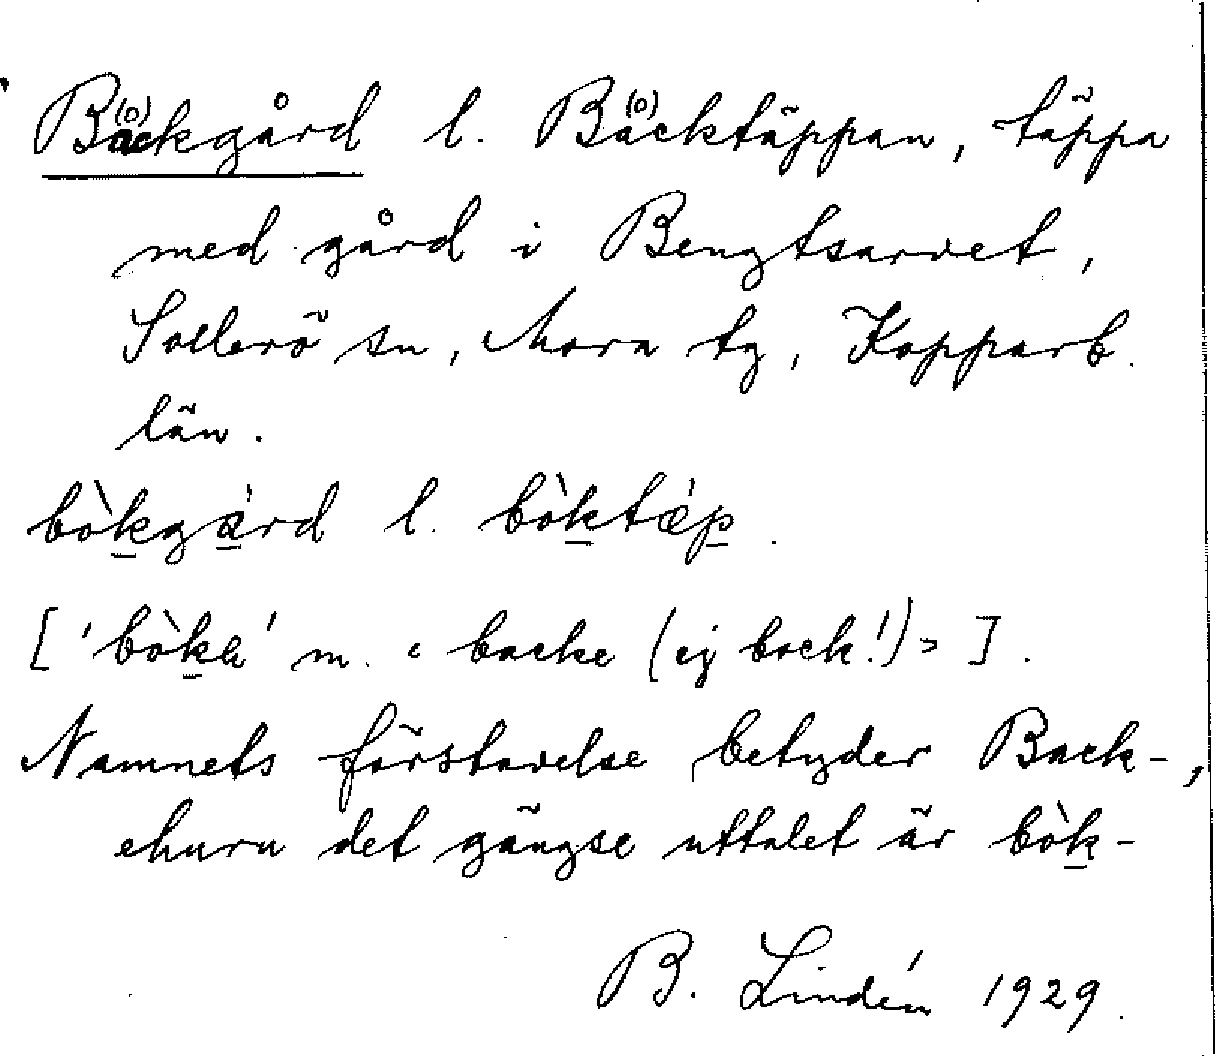 Bä(o)ckgård l. Bä(o)cktäppan, täppa
med gård i Bengtsarvet,
Sollerö sn, Mora tg, Kopparb.
län.
bòkgárd l. bòktæ̀p.
['bòka' m. "backe (ej bock!)"].
Namnets förstavelse betyder Back-,
ehuru det gängse uttalet är bòk-
B. Lindén 1929.